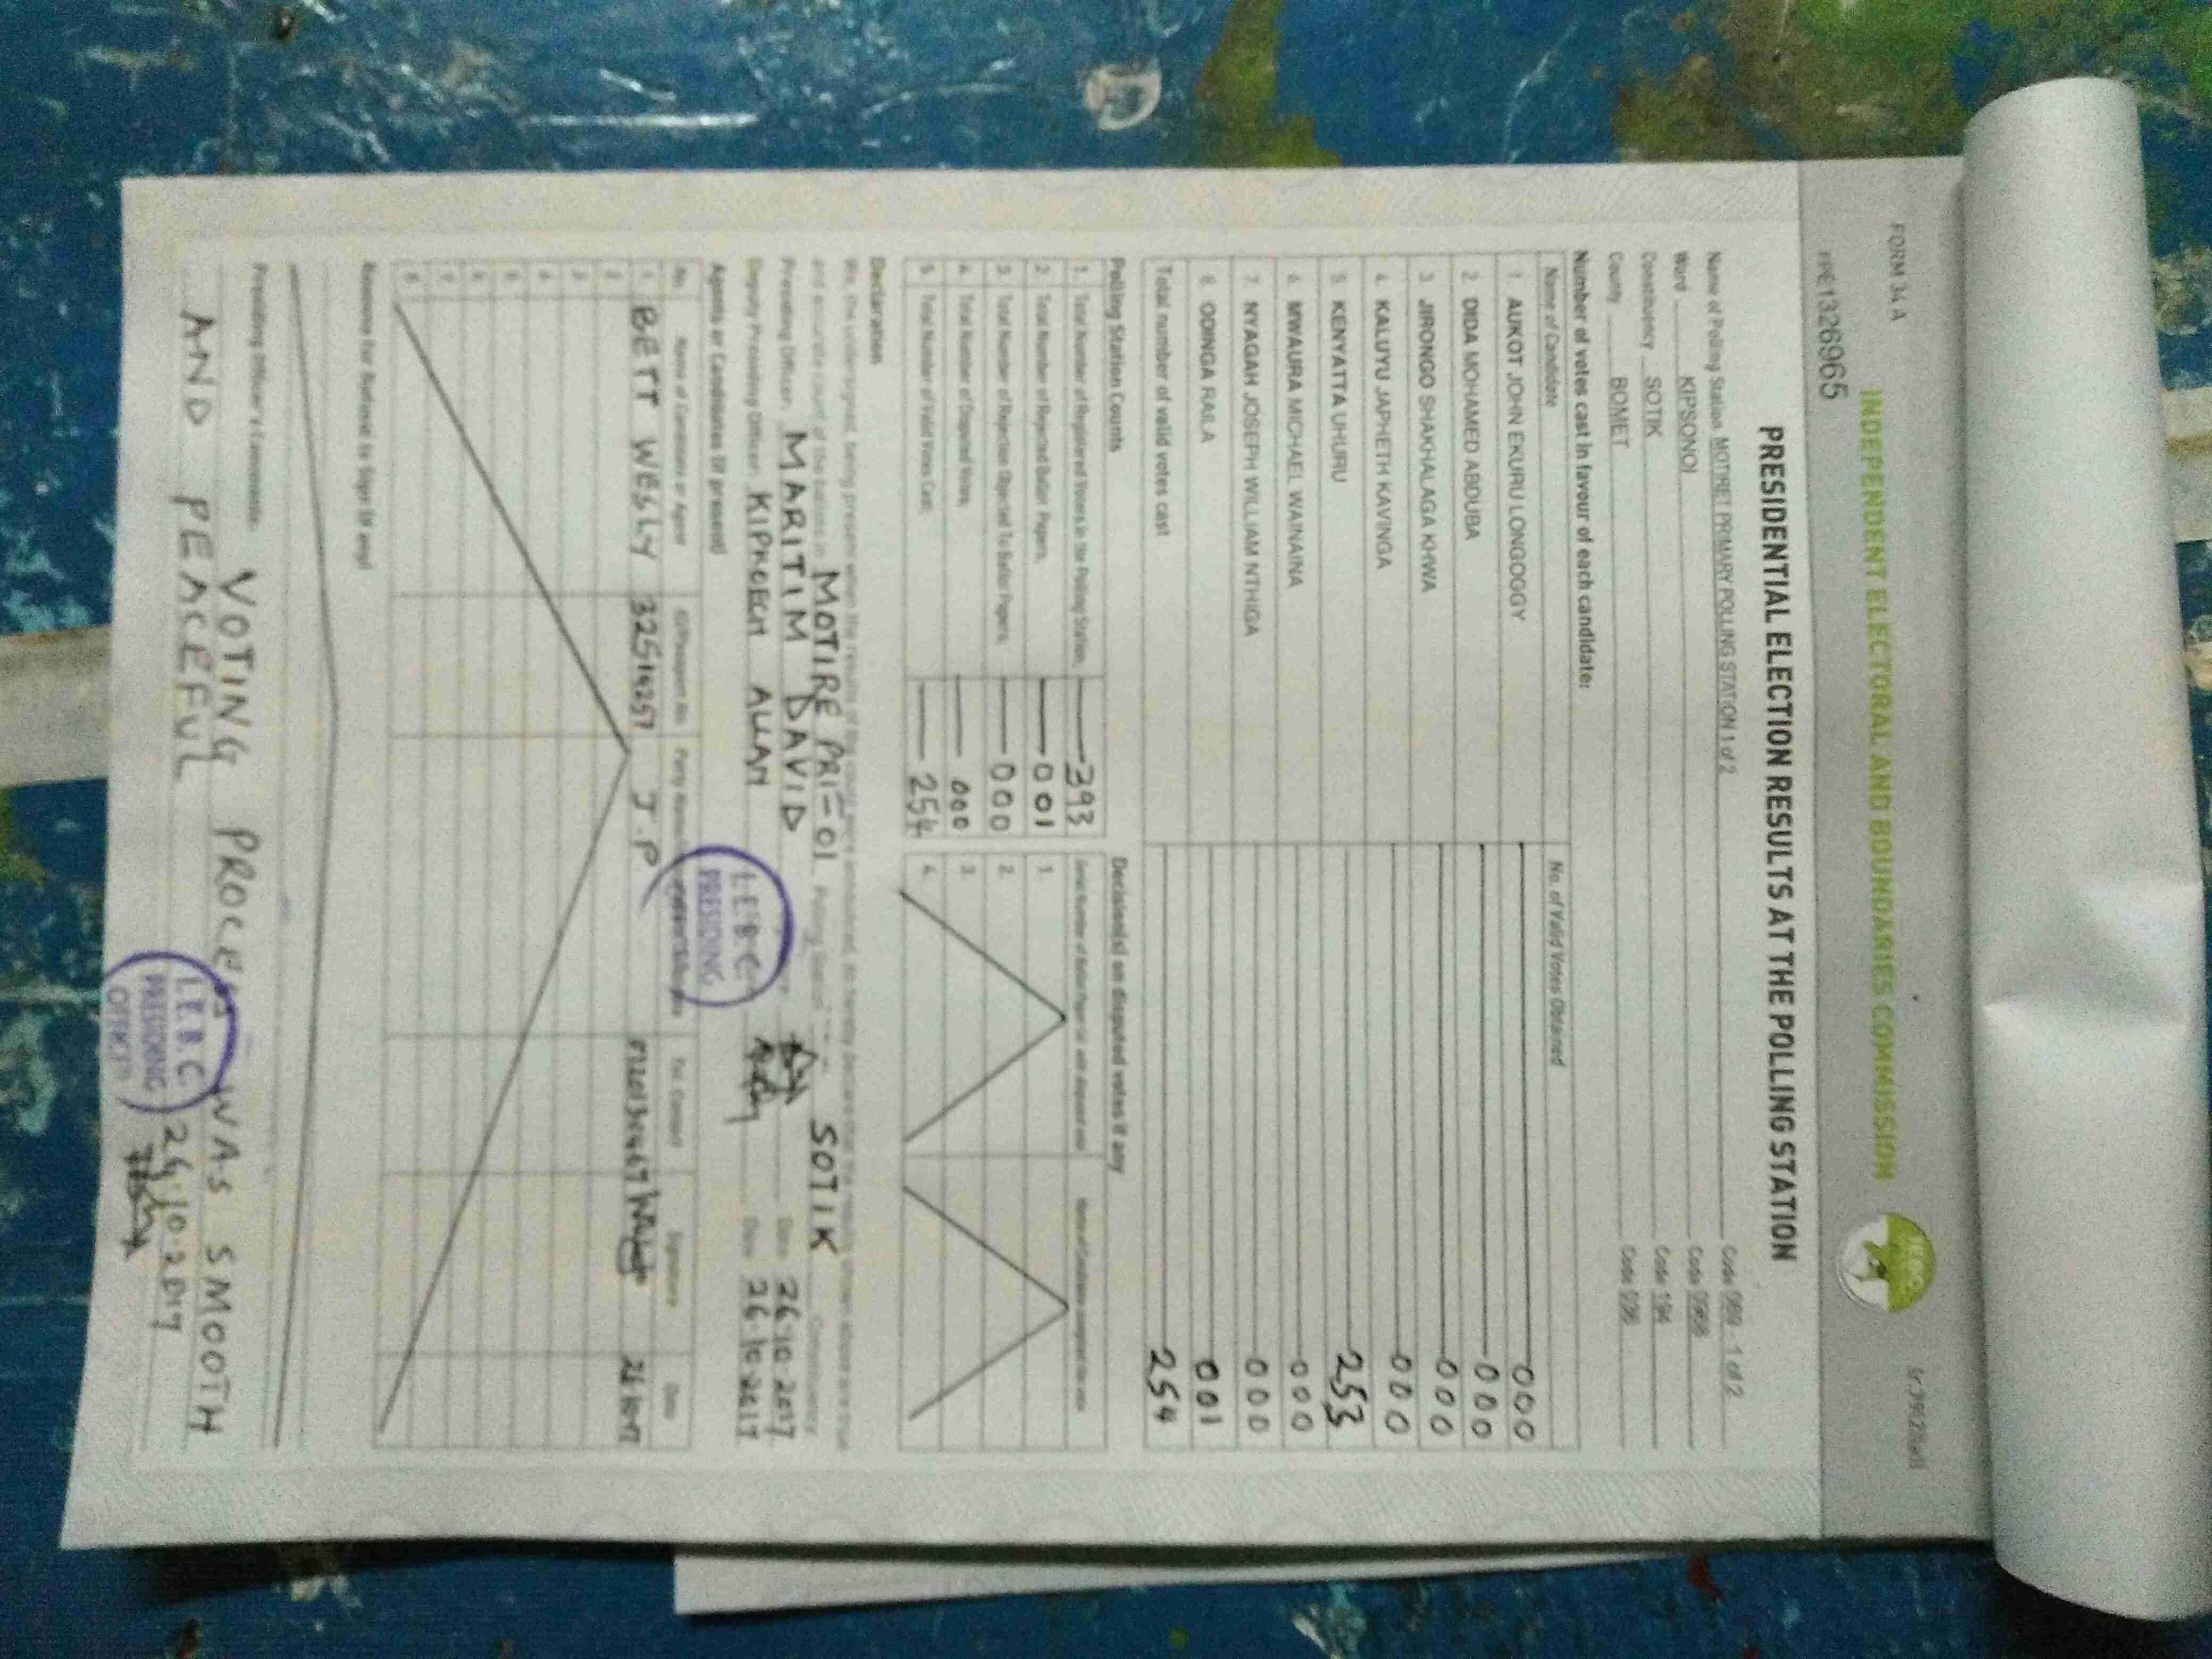 FORM 34 A
INDEPENDENT ELECTORAL AND BOUNDARIES COMMISSION
IEBC
PRE1326965
PRESIDENTIAL ELECTION RESULTS AT THE POLLING STATION
Name of Polling Station MOTIRET PRIMARY POLLING STATION 1 of 2 Code 089 - 1 of 2
Ward KIPSONOI Code 0968
Constituency SOTIK Code 194
County BOMET Code 036
Number of votes cast in favour of each candidate:
Name of Candidate No. of Valid Votes Obtained
1 AUKOT JOHN EKURU LONGOGGY 000
2 DIDA MOHAMED ABDUBA 000
3 JIRONGO SHAKHALAGA KHWA 000
4 KALUYU JAPHETH KAVINGA 000
5 KENYATTA UHURU 253
6 MWAURA MICHAEL WAINAINA 000
7 NYAGAH JOSEPH WILLIAM NTHIGA 000
8 ODINGA RAILA 001
Total number of valid votes cast 254
Polling Station Counts
1. Total Number of Registered Voters in the Polling Station; 393
2. Total Number of Rejected Ballot Papers; 001
3. Total Number of Rejection Objected To Ballot Papers; 000
4. Total Number of Disputed Votes; 000
5. Total Number of Valid Votes Cast; 254
Decision(s) on disputed votes if any
1
2
3
4
Declaration
We, the undersigned, being present when the results of the count were announced, do hereby declare that the results shown above are true
and accurate count of the ballots in MOTIRE PRI=01 Polling Station SOTIK Constituency
Presiding Officer: MARITIM DAVID Date 26.10.2017
Deputy Presiding Officer: KIPKOECH ALLAN Date 26.10.2017
I.E.B.C
PRESIDING
Agents or Candidates (if present)
No. Name of Candidate or Agent ID/Passport No. Tel. Contact Signature Date
1 BETT WESLY 32514257 J.P
2
3
4
5
6
7
8
Reasons for Refusal to Sign (if any)
Presiding Officer's Comments: VOTING PROCESS WAS SMOOTH
AND PEACEFUL
I.E.B.C
PRESIDING
OFFICER
26.10.2017